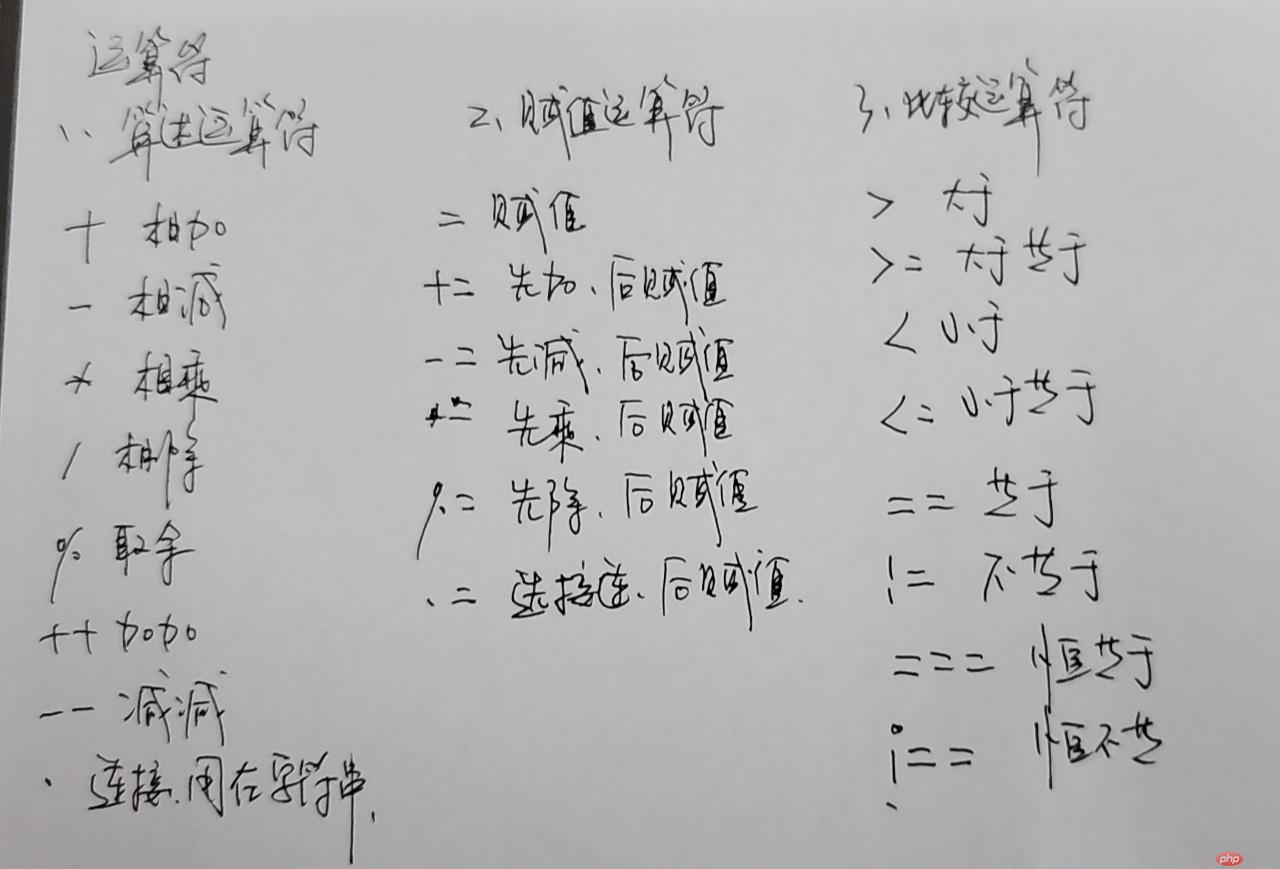 运算符
1、算述运算符
+ 相加
- 相减
* 相乘
/ 相除
% 取余
++ 加加
-- 减减
. 连接、用在字符串.
2、赋值运算符
= 赋值
+= 先加、后赋值
-= 先减、后赋值
*= 先乘、后赋值
%= 先除、后赋值
.= 接连、后赋值.
3、比较运算符
> 大于
>= 大于等于
< 小于
<= 小于等于
== 等于
!= 不等于
=== 恒等于
!== 恒不等
php